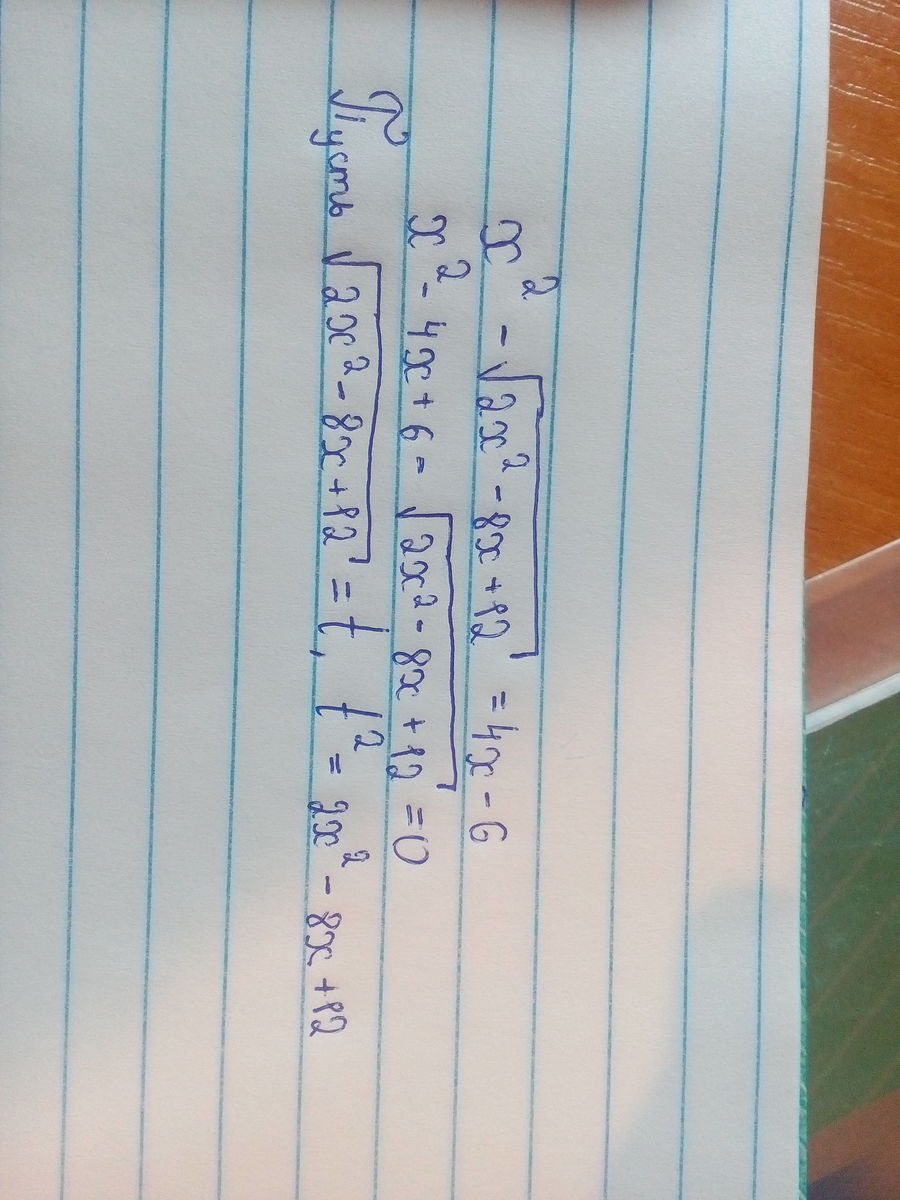 x² - √(2x² - 8x + 12) = 4x - 6
x² - 4x + 6 - √(2x² - 8x + 12) = 0
Пусть √(2x² - 8x + 12) = t, t² = 2x² - 8x + 12